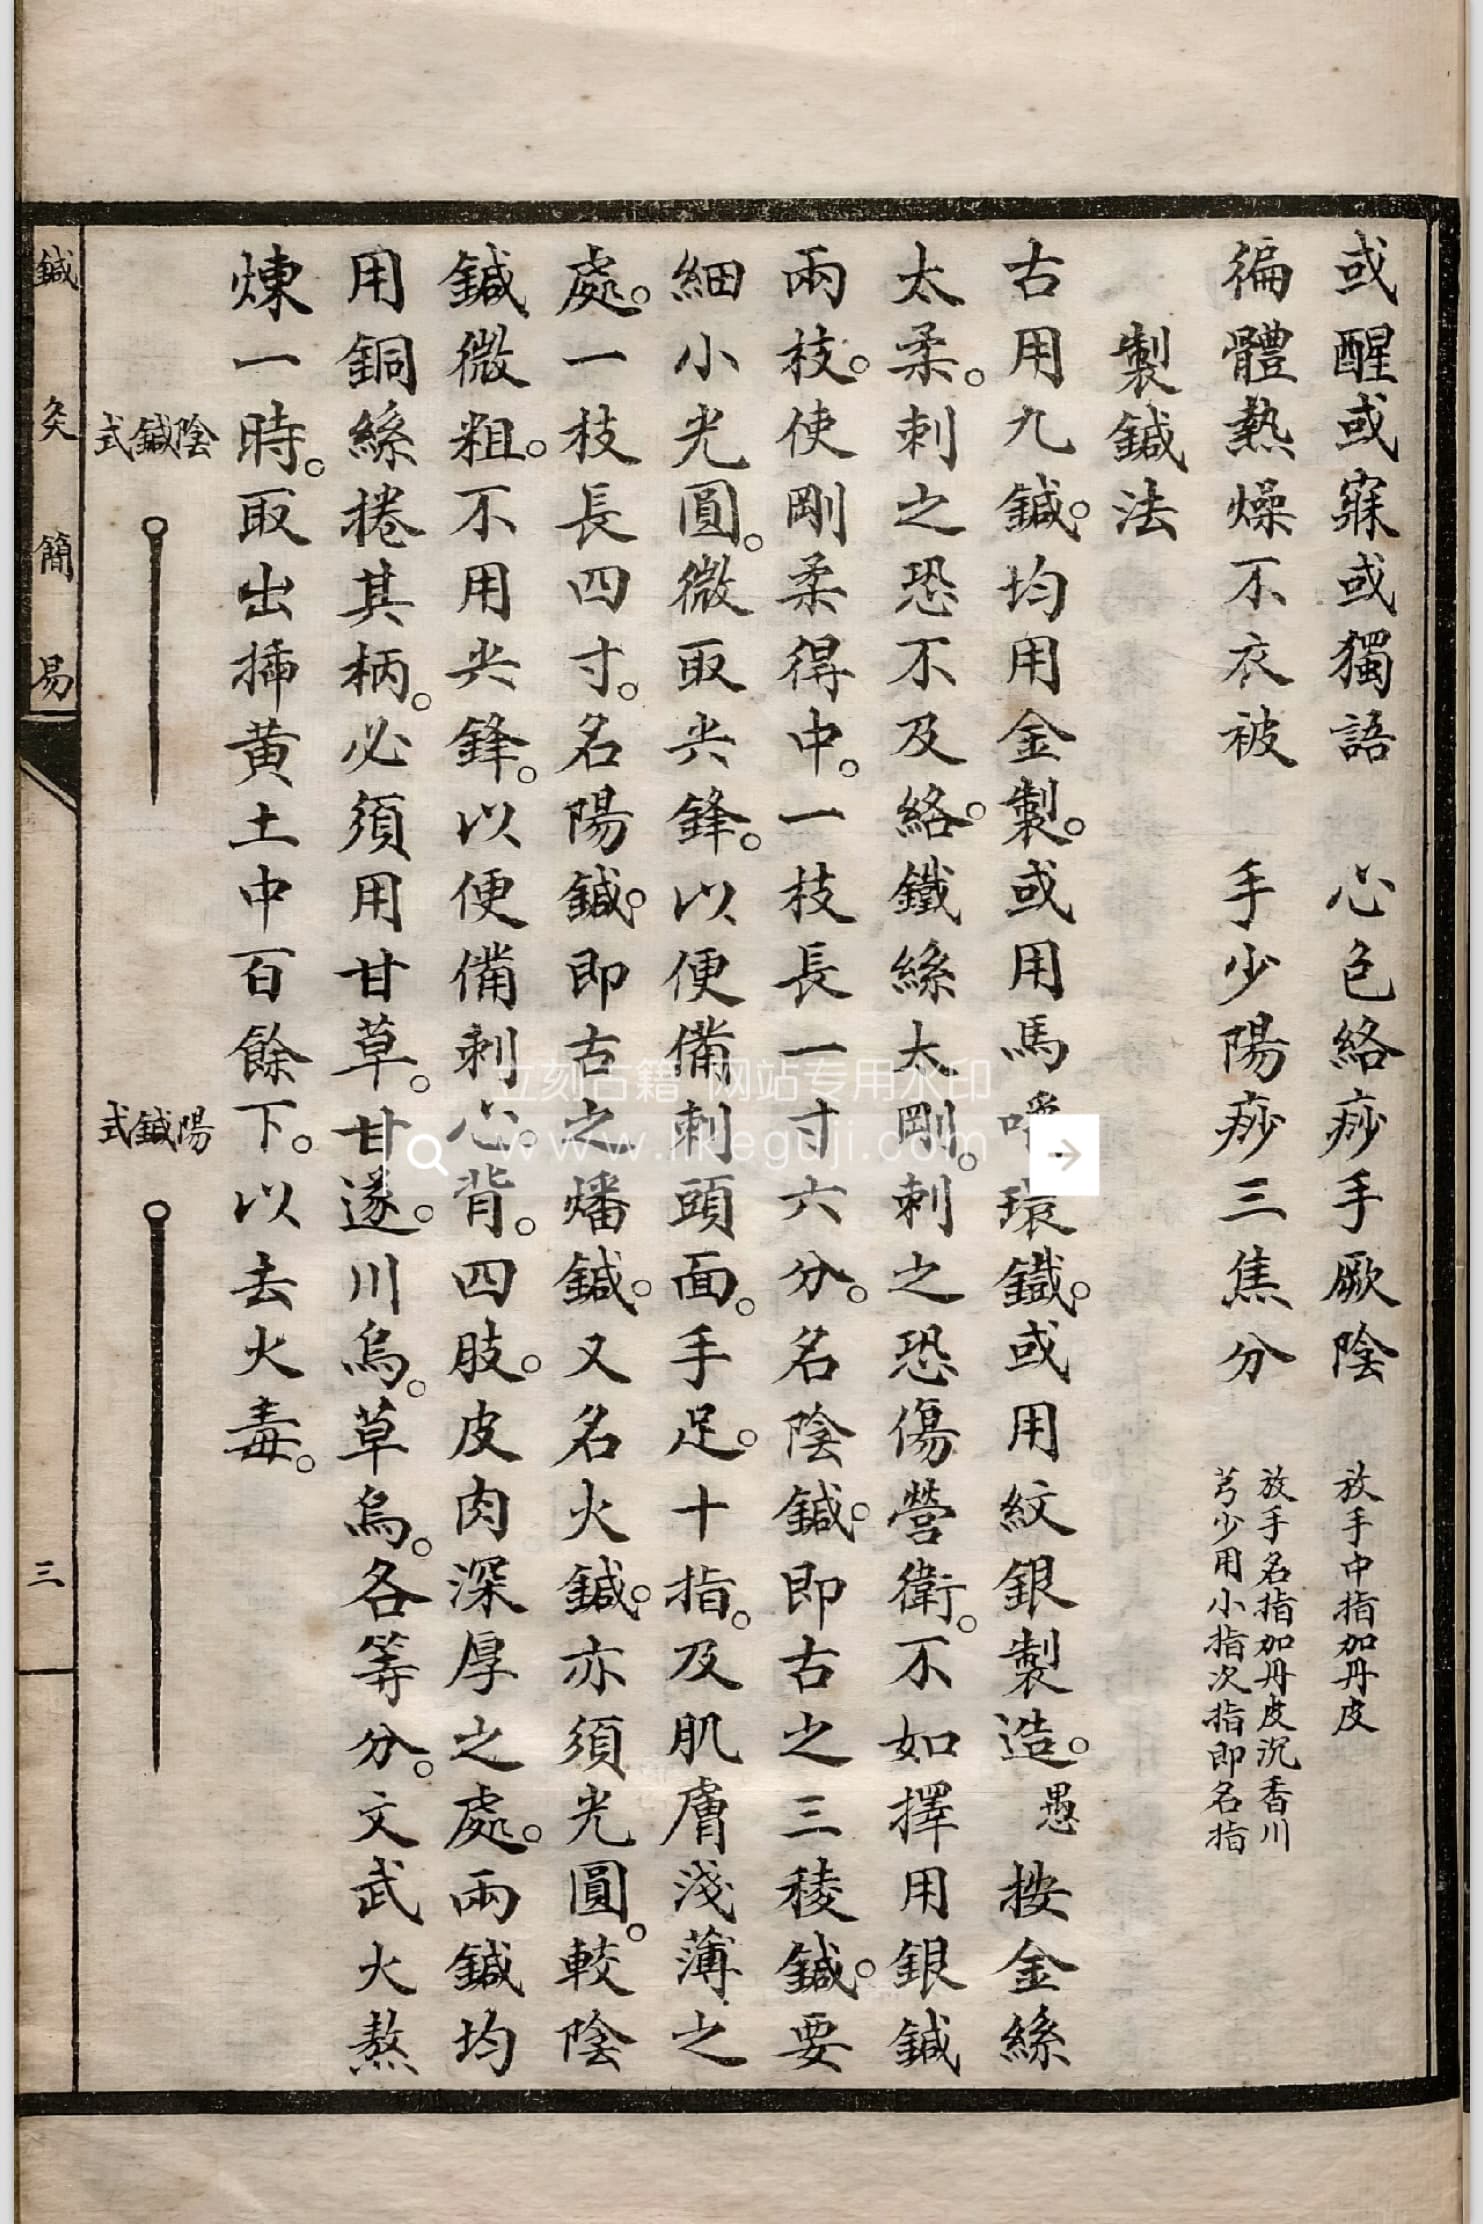 或醒或寐或獨語　心色絡痧手厥陰　放手中指加丹皮
徧體熱燥不衣被　手少陽痧三焦分　放手名指加丹皮沉香川
芎少用小指次指即名指
製鍼法
古用九鍼。均用金製。或用馬環鐵。或用紋銀製造。愚按金絲
太柔。刺之恐不及絡。鐵絲太剛。刺之恐傷營衛。不如擇用銀鍼
兩枝。使剛柔得中。一枝長一寸六分。名陰鍼。即古之三稜鍼。要
細小光圓。微取尖鋒。以便備刺頭面。手足。十指。及肌膚淺薄之
處。一枝長四寸。名陽鍼。即古之燔鍼。又名火鍼。亦須光圓。較陰
鍼微粗。不用尖鋒。以便備刺心。背。四肢。皮肉深厚之處。兩鍼均
用銅絲捲其柄。必須用甘草。甘遂。川烏。草烏。各等分。文武火熬
煉一時。取出揷黃土中百餘下。以去火毒。
陰鍼式
陽鍼式
鍼灸簡易
三
立刻古籍 网站专用水印
www.likeguji.com